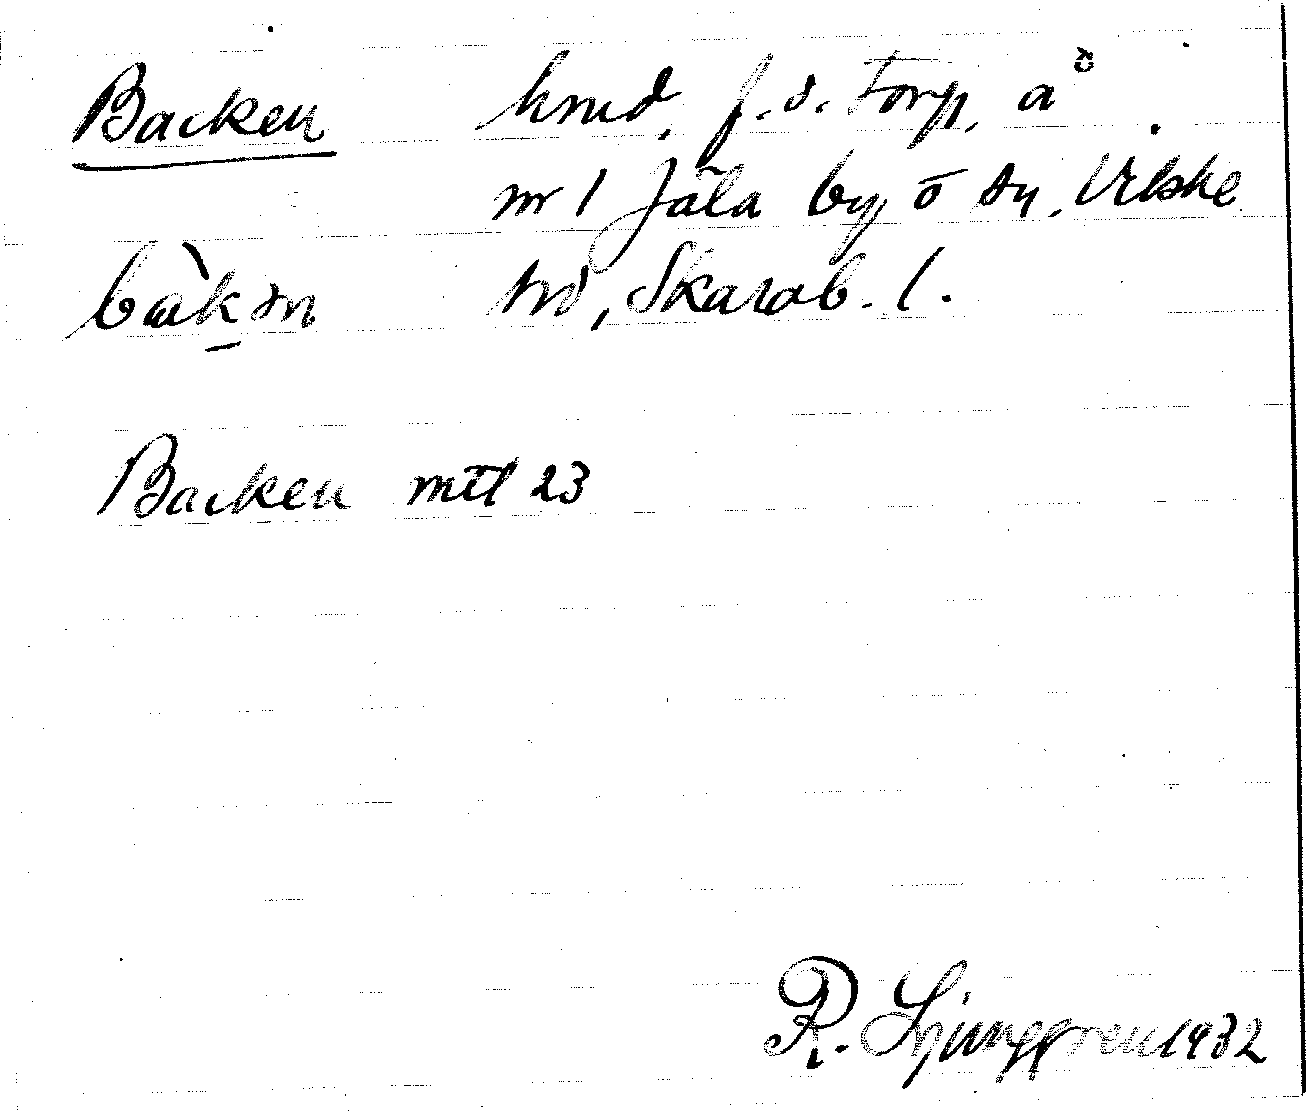 Backen hmd, f.d. torp, å
nr 1 Jäla by o sn, Vilske
bàkən hd, Skarab. l.
Backen mtl 23
R. Ljunggren 1932